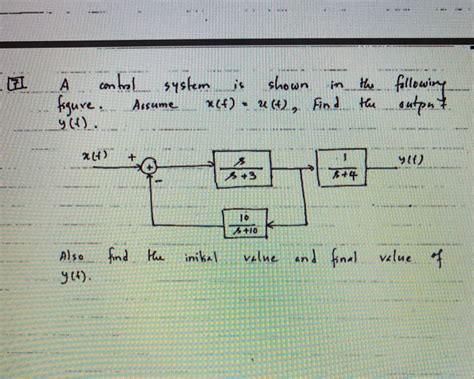 7 A control system is shown in the following
figure. Assume x(t) = u(t), Find the output
y(t).
x(t) + + s/s+3 1/s+4 y(t)
-
10/s+10
Also find the initial value and final value of
y(t).